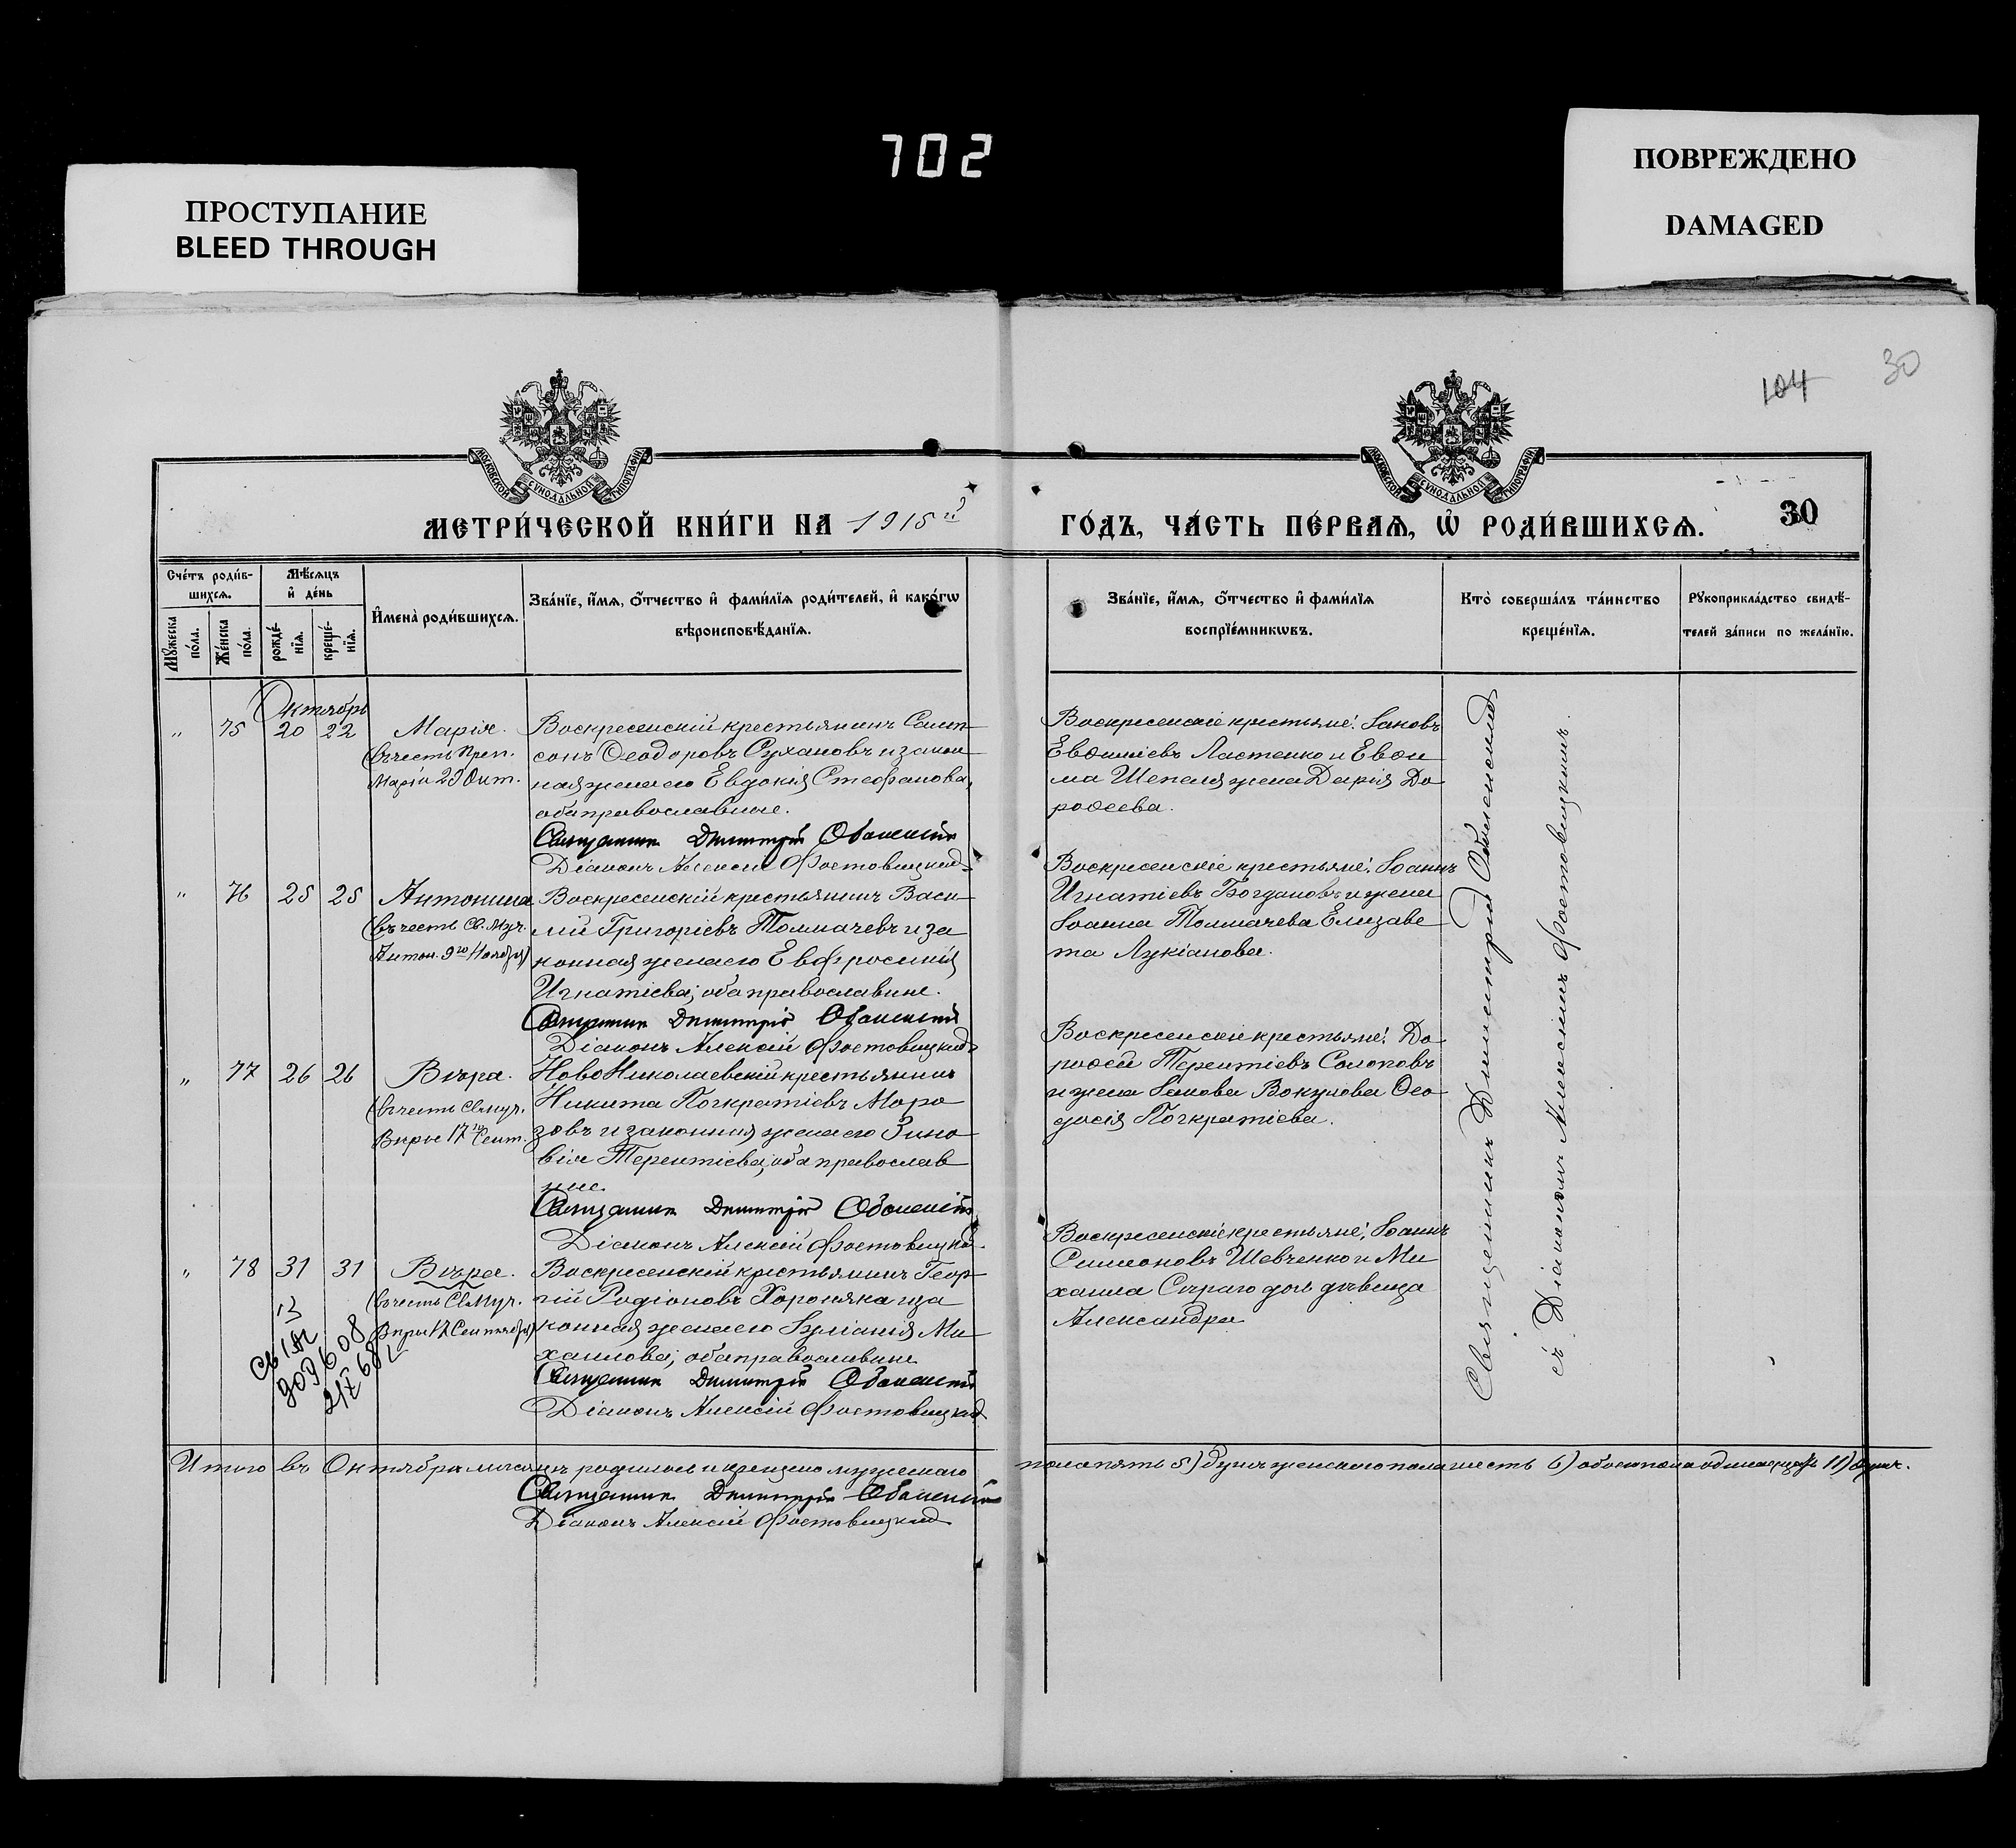 702
ПРОСТУПАНИЕ
BLEED THROUGH
ПОВРЕЖДЕНО
DAMAGED
104
30
МОСКОВСКОЙ СУНОДАЛЬНОЙ ТИПОГРАФІИ
МОСКОВСКОЙ СУНОДАЛЬНОЙ ТИПОГРАФІИ
МЕТРИ́ЧЕСКОЙ КНИ́ГИ НА 1915й
ГО́ДЪ, ЧА́СТЬ ПЕ́РВАѦ, Ѡ҆ РОДИ́ВШИХСѦ.
30
Сче́тъ роди́в-
шихсѧ.
Мꙋ́жеска по́ла.
Же́нска по́ла.
Мѣ́сѧцъ
и҆ де́нь
рожде́-
нїѧ.
креще́-
нїѧ.
И҆мена̀ роди́вшихсѧ.
Зва́нїе, и҆́мѧ, ѻ҆́тчество и҆ фами́лїѧ роди́телей, и҆ како́гѡ
вѣроисповѣ́данїѧ.
Зва́нїе, и҆́мѧ, ѻ҆́тчество и҆ фами́лїѧ
воспрїе́мникѡвъ.
Кто̀ соверша́лъ та́инство
креще́нїѧ.
Рꙋкоприкла́дство свидѣ́-
телей за́писи по жела́нїю.
Октябрь
" 75 20 22 Марія.
(въ честь Преп.
Маріи 29 Окт.
Воскресенскій крестьянинъ Самп-
сонъ Ѳеодоровъ Сухановъ и закон
ная жена его Евдокія Стефанова,
оба православные.
Священникъ Димитрій Оболенскій
Діаконъ Алексій Фостовицкій
Воскресенскіе крестьяне: Іаковъ
Евѳиміевъ Ластенко и Евѳи
ма Шепеля жена Дарія До
роѳеева.
" 76 25 25 Антонина
(въ честь Св. Муч.
Антон. 9го Ноября)
Воскресенскій крестьянинъ Васи
лій Григоріевъ Толмачевъ и за
конная жена его Евфросинія
Игнатіева; оба православные.
Священникъ Димитрій Оболенскій
Діаконъ Алексій Фостовицкій
Воскресенскіе крестьяне: Іоаннъ
Игнатіевъ Богдановъ и жена
Іоанна Толмачева Елизаве
та Лукіанова.
" 77 26 26 Вѣра.
(въ честь Св. Муч.
Вѣры 17го Сент.
НовоНиколаевскій крестьянинъ
Никита Погкратіевъ Моро
зовъ и законная жена его Зино
вія Терентіева; оба православ
ные.
Священникъ Димитрій Оболенскій
Діаконъ Алексій Фостовицкій.
Воскресенскіе крестьяне: До
роѳей Терентіевъ Солоповъ
и жена Іакова Вокулова Ѳео
досія Погкратіева.
" 78 31 31 Вѣра.
(въ честь Св. Муч.
Вѣры 17 Сентября)
Воскресенскій крестьянинъ Геор-
гій Родіоновъ Хороняка и за
конная жена его Іуліанія Ми
хаилова; оба православные
Священникъ Димитрій Оболенскій
Діаконъ Алексій Фостовицкій
Воскресенскіе крестьяне: Іоаннъ
Симеоновъ Шевченко и Ми
хаила дочь дѣвица
Александра
Священникъ Димитрій Оболенскій
съ Діакономъ Алексіемъ Фостовицкимъ.
Итого въ Октябрѣ мѣсяцѣ родилось и крещено мужескаго пола пять 5) душъ женскаго пола шесть 6) обоего пола одинадцать 11) душъ.
Священникъ Димитрій Оболенскій
Діаконъ Алексій Фостовицкій